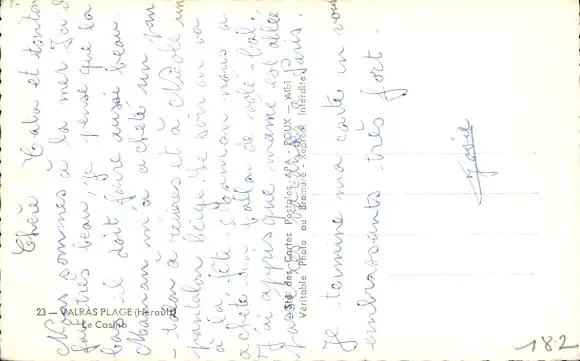 Chère Tata et tonton
Nous sommes à la mer Ici il
fait très beau, je pense que la
bas il doit faire aussi beau.
Maman m'a acheté un pan
talon à rayures et à Nicole un
pantalon beige. Le soir on va
à la fête. Maman nous a
acheté un ballon de volé-bal.
J'ai appris que mamé est allée
passer
Paris.
Je termine ma carte en vous
embrassants très fort.
Josie
23 — VALRAS PLAGE (Hérault)
Le Casino
Sté des Cartes Postales APA - POUX - Albi
Véritable Photo au Bromure - Reprod. Interdite
182